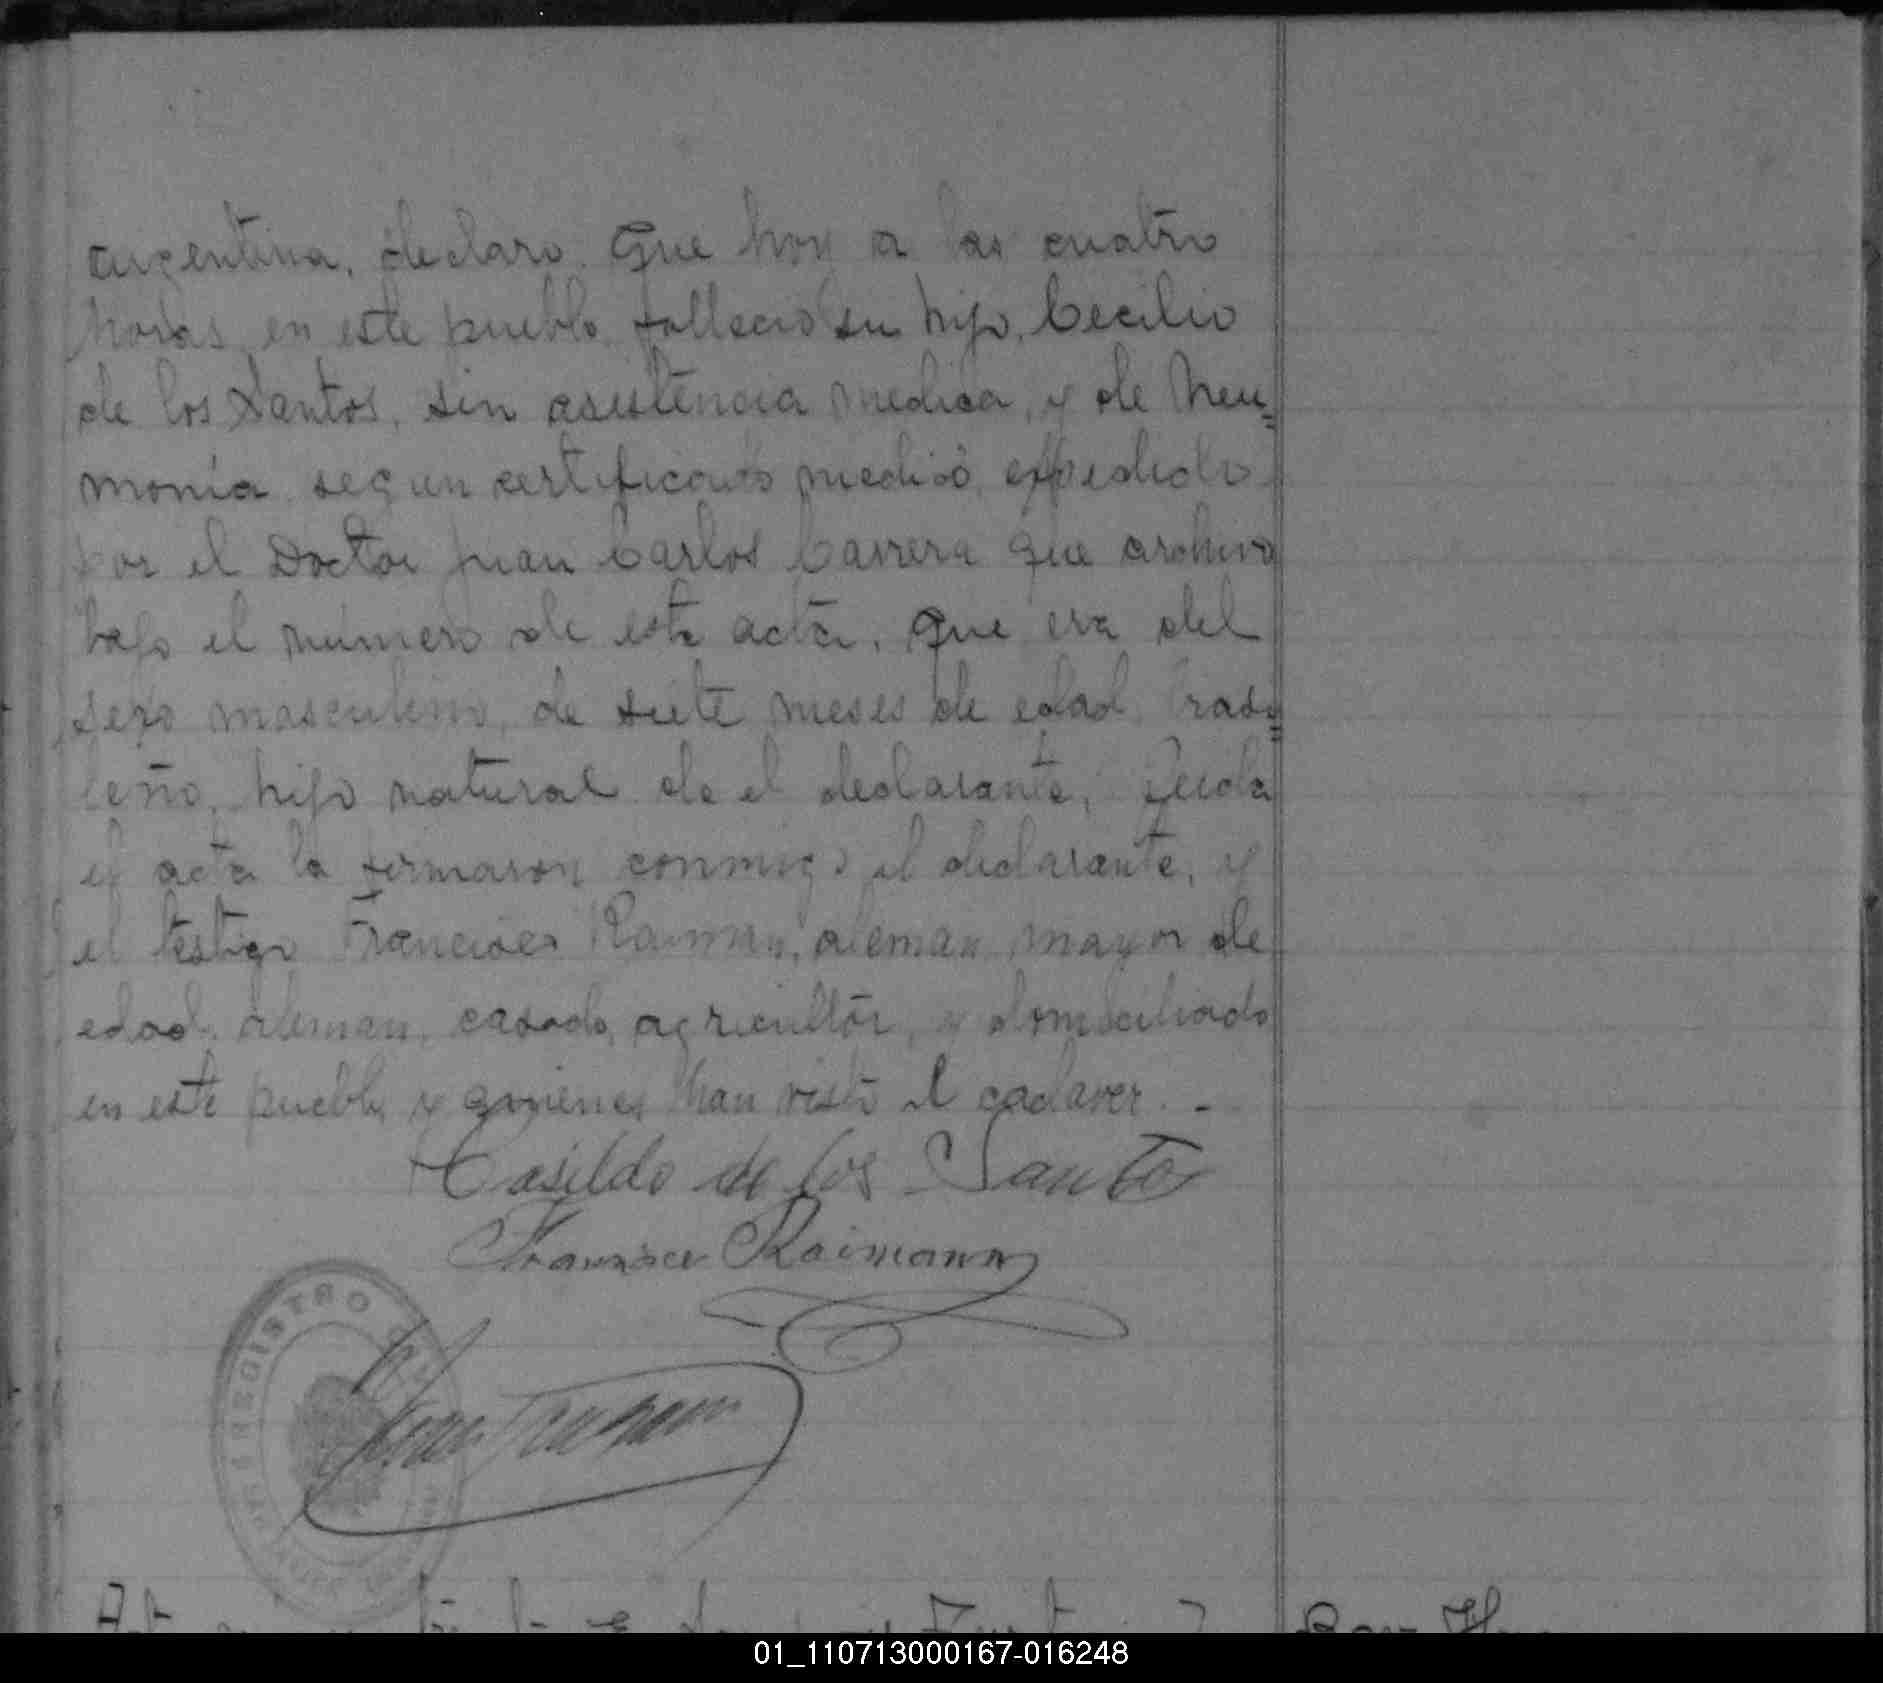 argentina, declaro. Que hoy a las cuatro
horas, en este pueblo, fallecio su hijo, Cecilio
de los Santos, sin asistencia medica, y de Neu=
monía segun certificado medico, expedido
por el Doctor Juan Carlos Carrera que archivo
bajo el número de esta acta, que era del
sexo masculino, de siete meses de edad, brasi=
leño, hijo natural de el declarante,
el acta la firmaron conmigo el declarante, y
el testigo Francisco Raiman, aleman, mayor de
edad, aleman, casado, agricultor, y domiciliado
en este pueblo, y quienes han visto el cadaver. -
Casildo de los Santos
Francisco Raimann
REGISTRO
01_110713000167-016248